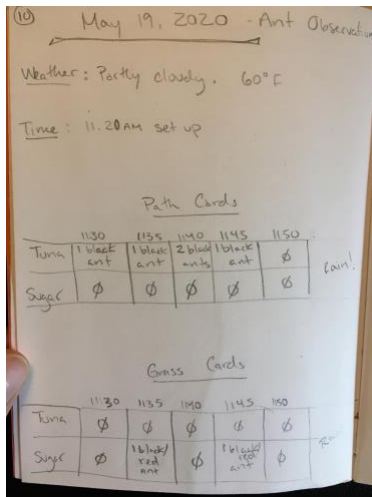 10
May 19, 2020 - Ant Observation
Weather: Partly cloudy. 60°F
Time: 11.20AM set up
Path Cards
1130 1135 1140 1145 1150
Tuna 1 black ant 1 black ant 2 black ants 1 black ant ∅
Rain!
Sugar ∅ ∅ ∅ ∅ ∅
Grass Cards
11:30 1135 1140 1145 1150
Tuna ∅ ∅ ∅ ∅ ∅
Sugar ∅ 1 black/red ant ∅ 1 black/red ant ∅